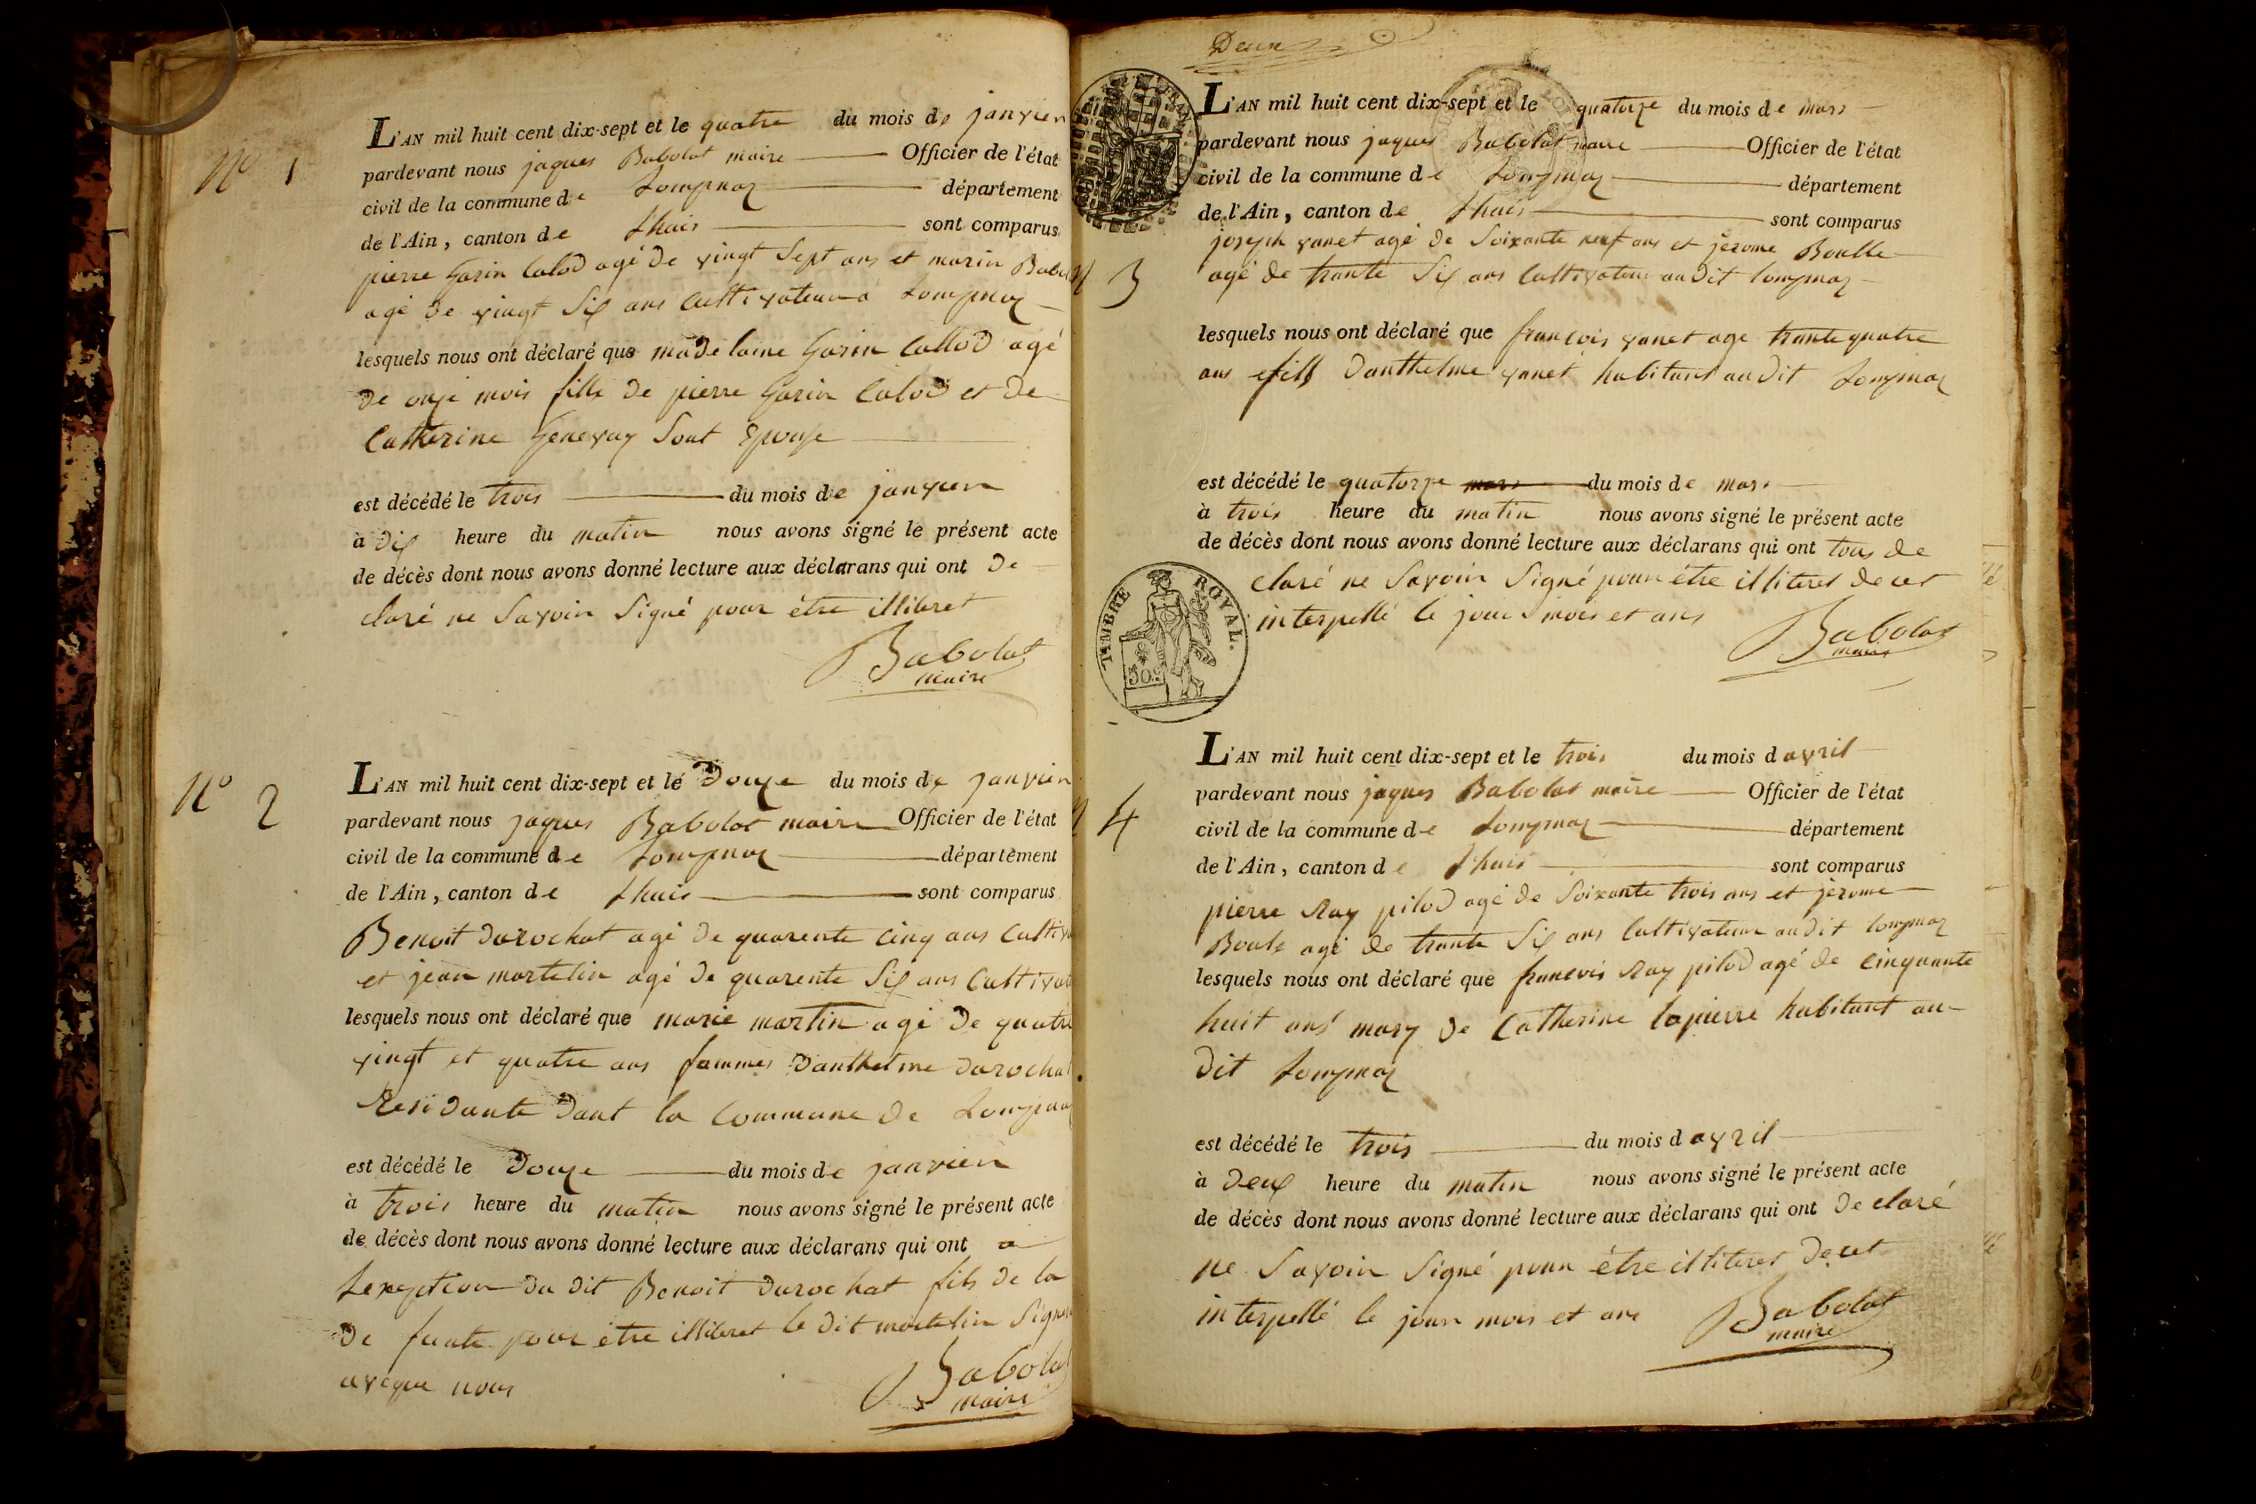 N° 1
L'AN mil huit cent dix-sept et le quatre du mois de janvier
pardevant nous jaques Babolat maire Officier de l'état
civil de la commune de Lompnaz département
de l'Ain, canton de Lhuis sont comparus
pierre Garin Calod agé de vingt Sept ans et marin
agé de vingt Six ans Cultivateur a Lompnaz
lesquels nous ont déclaré que madelaine Garin Callod agé
de onze mois fille de pierre Garin Calod et de
Catherine Genevay Sont Epouse
est décédé le trois du mois de janvier
à Dix heure du matin nous avons signé le présent acte
de décès dont nous avons donné lecture aux déclarans qui ont de
claré ne Savoir Signé pour étre illiteret
Babolat
maire
N° 2
L'AN mil huit cent dix-sept et le Douze du mois de janvier
pardevant nous jaques Babolat maire Officier de l'état
civil de la commune de Lompnaz département
de l'Ain, canton de Lhuis sont comparus
Benoit Durochat agé de quarente Cinq ans
et jean martelin agé de quarente Six ans
lesquels nous ont déclaré que marie martin agé de quatre
vingt et quatre ans fammes Danthelme Durochat
Residante Dant la Commune de Lompnaz
est décédé le Douze du mois de janvier
à trois heure du matin nous avons signé le présent acte
de décès dont nous avons donné lecture aux déclarans qui ont a
Lexeption du dit Benoit Durochat fils de la
De funte pour étre illiteret le Dit martelin
aveque nous
Babolat
maire
Deux
L'AN mil huit cent dix-sept et le quatorze du mois de mars
pardevant nous jaques Babolat maire Officier de l'état
civil de la commune de Lompnaz département
de l'Ain, canton de Lhuis sont comparus
joseph vanet agé de Soixante neuf ans et jérome Boulle
N 3
agé de trante Six ans Cultivateur audit lompnaz
lesquels nous ont déclaré que francois vanet age trante quatre
ans fils Danthelme vanet habitant au dit Lompnaz
est décédé le quatorze mars du mois de mars
à trois heure du matin nous avons signé le présent acte
de décès dont nous avons donné lecture aux déclarans qui ont tous de
claré ne Savoir Signé pour étre illiteret de cet
interpellé le jour mois et ans
Babolat
maire
TIMBRE ROYAL.
50c
L'AN mil huit cent dix-sept et le trois du mois d avril
pardevant nous jaques Babolat maire Officier de l'état
N 4
civil de la commune de Lompnaz département
de l'Ain, canton de Lhuis sont comparus
pierre Ray pilod agé de Soixante trois ans et jérome
Boule agé de trante Six ans Cultivateur audit lompnaz
lesquels nous ont déclaré que francois Ray pilod agé de cinquante
huit ans mary de Catherine lapierre habitant au
dit Lompnaz
est décédé le trois du mois d avril
à Deux heure du matin nous avons signé le présent acte
de décès dont nous avons donné lecture aux déclarans qui ont De claré
ne Savoir Signé pour étre illiteret de cet
interpellé le jour mois et ans
Babolat
maire